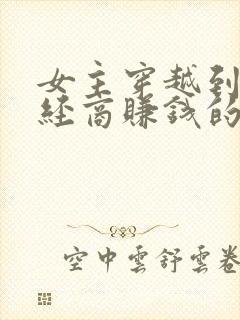 女主穿越到
经商賺钱的
空中雲舒雲卷